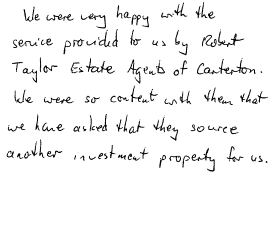 We were very happy with the
service provided to us by Robert
Taylor Estate Agents of Carterton.
We were so content with them that
we have asked that they source
another investment property for us.